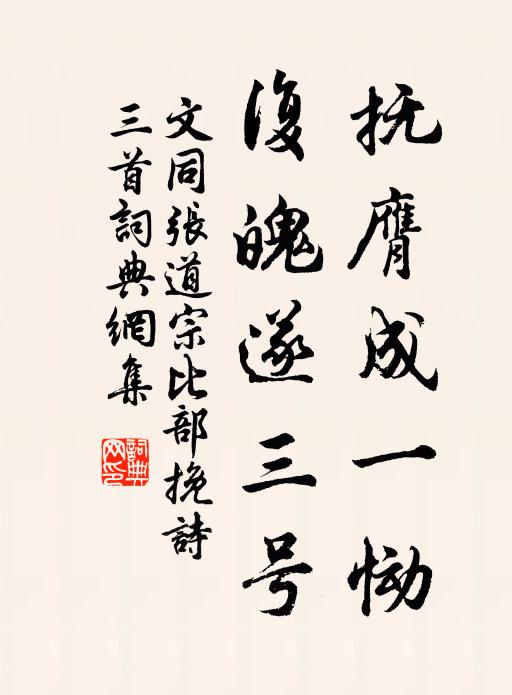 抚膺成一恸
復魄遂三号
文同張道宗比部挽詩
三首詞典網集
詞典
网印